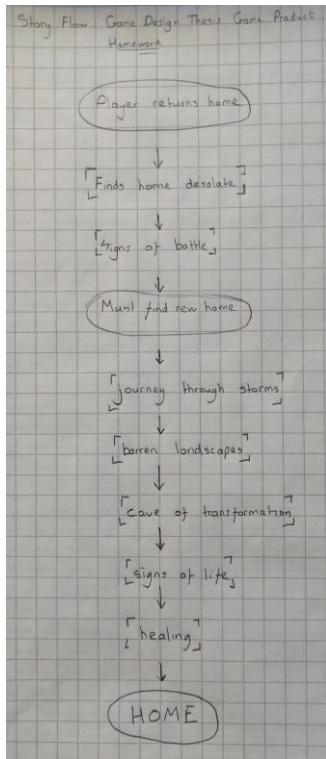 Story Flow : Game Design Thesis Game Product
Homeward
Player returns home
Finds home desolate
Signs of battle
Must find new home
journey through storms
barren landscapes
Cave of transformation
signs of life
healing
HOME